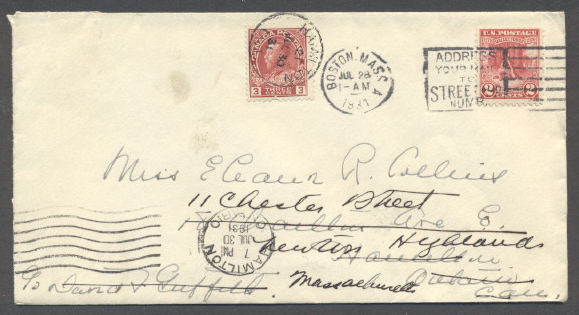 BOSTON, MASS. A
JUL 28
1-AM
1931
ADDRESS
YOUR MAIL
TO
STREET
NUMB
U.S. POSTAGE
CANADA
3 THREE 3
2 2
Miss Eleanor R. Collins
11 Chester Street
Ave E.
Newton Highlands
Hamilton
Ontario
Massachusetts
Can.
c/o David J. Griffith
HAMILTON
7 PM
JUL 30
1931